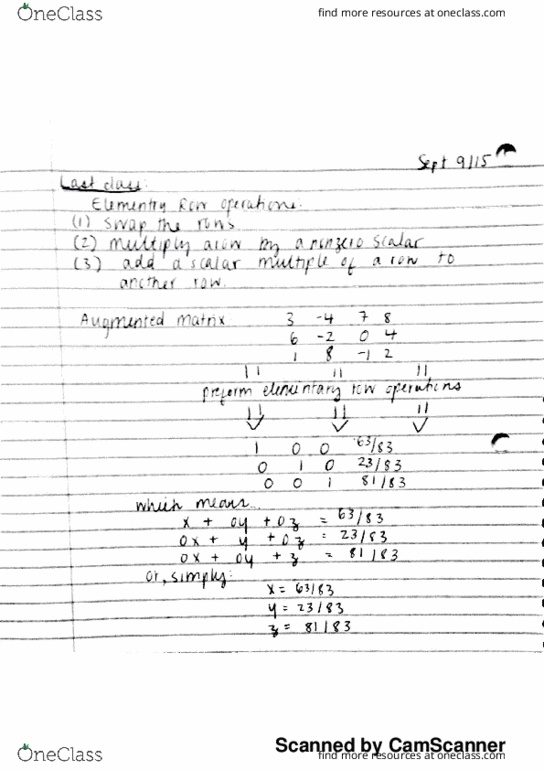 OneClass
find more resources at oneclass.com
Sept 9/15
Last class:
Elementry Row operations:
(1) swap the rows
(2) multiply a row by a nonzero scalar
(3) add a scalar multiple of a row to
another row.
Augmented matrix: 3 -4 7 8
6 -2 0 4
1 8 -1 2
preform elementary row operations
1 0 0 63/83
0 1 0 23/83
0 0 1 81/83
which means...
x + 0y + 0z = 63/83
0x + y + 0z = 23/83
0x + 0y + z = 81/83
or, simply:
x = 63/83
y = 23/83
z = 81/83
Scanned by CamScanner
OneClass
find more resources at oneclass.com